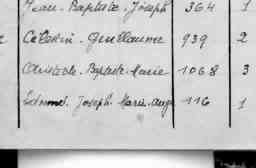 Jean. Baptiste. Joseph 364 1
Célestin. Guillaume 939 2
Aristide. Baptiste. Marie 1068 3
Edmond. Joseph. Marie. Aug 116 1